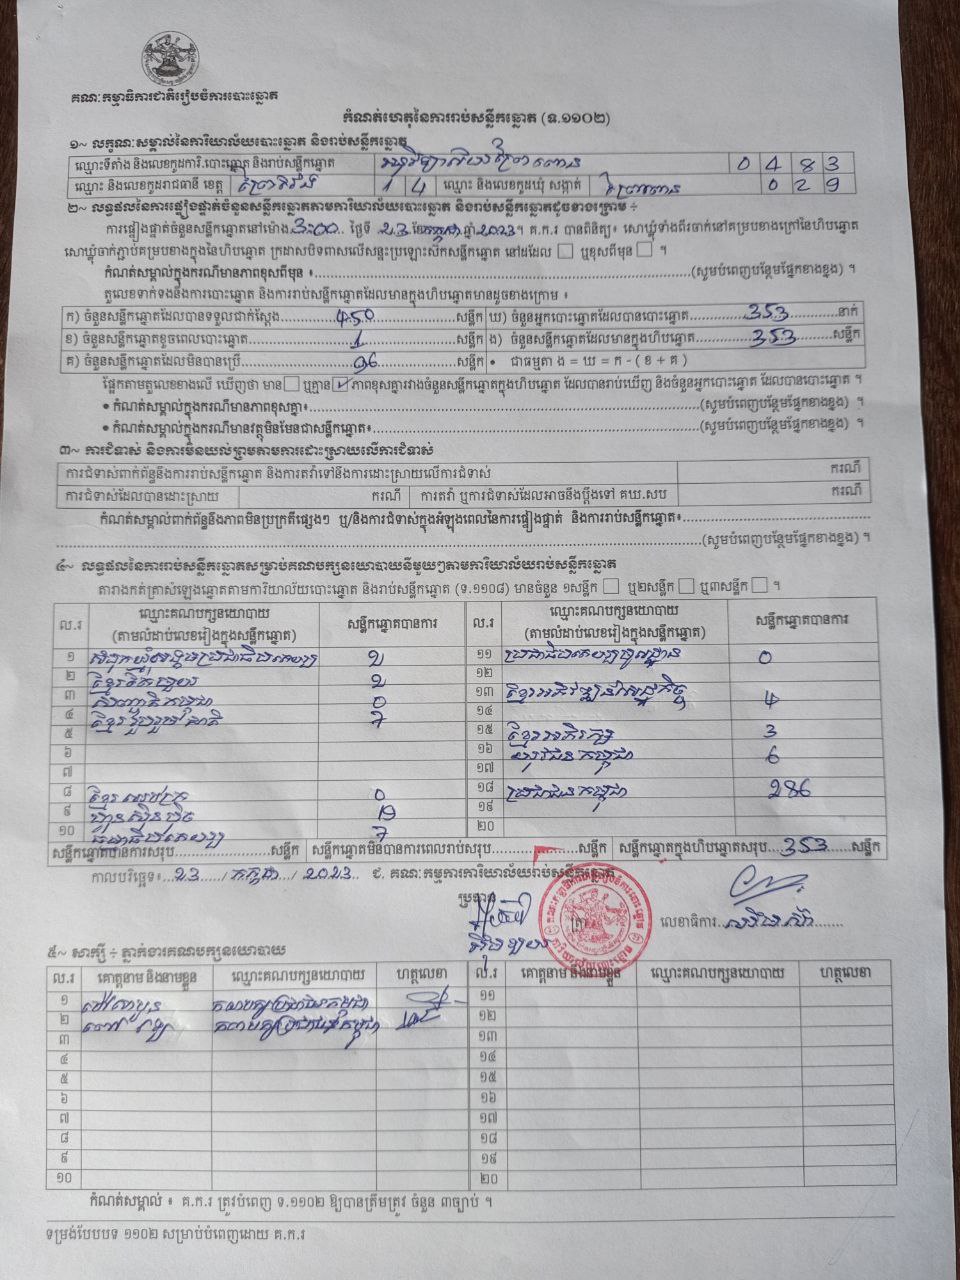 គណៈកម្មាធិការជាតិរៀបចំការបោះឆ្នោត
កំណត់ហេតុនៃការរាប់សន្លឹកឆ្នោត (ទ.១១០២)
១~ លក្ខណៈសម្គាល់នៃការិយាល័យបោះឆ្នោត និងរាប់សន្លឹកឆ្នោត
ឈ្មោះទីតាំង និងលេខកូដការិ.បោះឆ្នោត និងរាប់សន្លឹកឆ្នោត 0 4 8 3
ឈ្មោះ និងលេខកូដរាជធានី ខេត្ត ព្រៃវែង 1 4 ឈ្មោះ និងលេខកូដឃុំ សង្កាត់ 0 2 9
២~ លទ្ធផលនៃការផ្ទៀងផ្ទាត់ចំនួនសន្លឹកឆ្នោតតាមការិយាល័យបោះឆ្នោត និងរាប់សន្លឹកឆ្នោតដូចខាងក្រោម ÷
ការផ្ទៀងផ្ទាត់ចំនួនសន្លឹកឆ្នោតនៅម៉ោង 3:00 ថ្ងៃទី 23 ខែ កក្កដា ឆ្នាំ 2023 ។ គ.ក.រ បានពិនិត្យ៖ សោឃ្លុំទាំងពីរចាក់នៅគម្របខាងក្រៅនៃហិបឆ្នោត
សោឃ្លុំចាក់ភ្ជាប់គម្របខាងក្នុងនៃហិបឆ្នោត ក្រដាសបិទពាសលើសន្ទះប្រឡោះស៊កសន្លឹកឆ្នោត នៅដដែល ឬខុសពីមុន ។
កំណត់សម្គាល់ក្នុងករណីមានភាពខុសពីមុន ៖ (សូមបំពេញបន្ថែមផ្នែកខាងខ្នង) ។
តួលេខទាក់ទងនឹងការបោះឆ្នោត និងការរាប់សន្លឹកឆ្នោតដែលមានក្នុងហិបឆ្នោតមានដូចខាងក្រោម ៖
ក) ចំនួនសន្លឹកឆ្នោតដែលបានទទួលជាក់ស្តែង 450 សន្លឹក ឃ) ចំនួនអ្នកបោះឆ្នោតដែលបានបោះឆ្នោត 353 នាក់
ខ) ចំនួនសន្លឹកឆ្នោតខូចពេលបោះឆ្នោត 1 សន្លឹក ង) ចំនួនសន្លឹកឆ្នោតដែលមានក្នុងហិបឆ្នោត 353 សន្លឹក
គ) ចំនួនសន្លឹកឆ្នោតដែលមិនបានប្រើ 96 សន្លឹក • ជាធម្មតា ង = ឃ = ក - ( ខ + គ )
ផ្អែកតាមតួលេខខាងលើ ឃើញថា មាន ឬគ្មាន ✓ ភាពខុសគ្នារវាងចំនួនសន្លឹកឆ្នោតក្នុងហិបឆ្នោត ដែលបានរាប់ឃើញ និងចំនួនអ្នកបោះឆ្នោត ដែលបានបោះឆ្នោត ។
• កំណត់សម្គាល់ក្នុងករណីមានភាពខុសគ្នា៖ (សូមបំពេញបន្ថែមផ្នែកខាងខ្នង) ។
• កំណត់សម្គាល់ក្នុងករណីមានវត្ថុមិនមែនជាសន្លឹកឆ្នោត៖ (សូមបំពេញបន្ថែមផ្នែកខាងខ្នង) ។
៣~ ការជំទាស់ និងការមិនយល់ព្រមតាមការដោះស្រាយលើការជំទាស់
ការជំទាស់ពាក់ព័ន្ធនឹងការរាប់សន្លឹកឆ្នោត និងការតវ៉ាទៅនឹងការដោះស្រាយលើការជំទាស់ ករណី
ការជំទាស់ដែលបានដោះស្រាយ ករណី ការតវ៉ា ឬការជំទាស់ដែលអាចនឹងប្តឹងទៅ គឃ.សប ករណី
កំណត់សម្គាល់ពាក់ព័ន្ធនឹងភាពមិនប្រក្រតីផ្សេងៗ ឬ/និងការជំទាស់ក្នុងអំឡុងពេលនៃការផ្ទៀងផ្ទាត់ និងការរាប់សន្លឹកឆ្នោត៖
(សូមបំពេញបន្ថែមផ្នែកខាងខ្នង) ។
៤~ លទ្ធផលនៃការរាប់សន្លឹកឆ្នោតសម្រាប់គណបក្សនយោបាយនីមួយៗតាមការិយាល័យរាប់សន្លឹកឆ្នោត
តារាងកត់ត្រាសំឡេងឆ្នោតតាមការិយាល័យបោះឆ្នោត និងរាប់សន្លឹកឆ្នោត (ទ.១១០៨) មានចំនួន ១សន្លឹក ឬ២សន្លឹក ឬ៣សន្លឹក ។
ល.រ ឈ្មោះគណបក្សនយោបាយ (តាមលំដាប់លេខរៀងក្នុងសន្លឹកឆ្នោត) សន្លឹកឆ្នោតបានការ ល.រ ឈ្មោះគណបក្សនយោបាយ (តាមលំដាប់លេខរៀងក្នុងសន្លឹកឆ្នោត) សន្លឹកឆ្នោតបានការ
១ សំបុកឃ្មុំសង្គមប្រជាធិបតេយ្យ 2 ១១ 0
២ ខ្មែរតែមួយ 2 ១២
៣ 0 ១៣ ខ្មែរអភិវឌ្ឍន៍សេដ្ឋកិច្ច 4
៤ ខ្មែររួបរួមជាតិ 7 ១៤
៥ ១៥ ខ្មែរអភិរក្ស 3
៦ ១៦ យុវជនកម្ពុជា 6
៧ ១៧
៨ 0 ១៨ ប្រជាជនកម្ពុជា 286
៩ ហ៊្វុនស៊ិនប៉ិច ១៩
១០ ធម្មាធិបតេយ្យ 7 ២០
សន្លឹកឆ្នោតបានការសរុប សន្លឹក សន្លឹកឆ្នោតមិនបានការពេលរាប់សរុប សន្លឹក សន្លឹកឆ្នោតក្នុងហិបឆ្នោតសរុប 353 សន្លឹក
កាលបរិច្ឆេទ៖ 23 / កក្កដា / 2023 ជ. គណៈកម្មការការិយាល័យរាប់សន្លឹកឆ្នោត
ប្រធាន ត្រា លេខាធិការ
៥~ សាក្សី ÷ ភ្នាក់ងារគណបក្សនយោបាយ
ល.រ គោត្តនាម និងនាមខ្លួន ឈ្មោះគណបក្សនយោបាយ ហត្ថលេខា ល.រ គោត្តនាម និងនាមខ្លួន ឈ្មោះគណបក្សនយោបាយ ហត្ថលេខា
១ គណបក្សប្រជាជនកម្ពុជា ១១
២ គណបក្សប្រជាជនកម្ពុជា ១២
៣ ១៣
៤ ១៤
៥ ១៥
៦ ១៦
៧ ១៧
៨ ១៨
៩ ១៩
១០ ២០
កំណត់សម្គាល់ ៖ គ.ក.រ ត្រូវបំពេញ ទ.១១០២ ឱ្យបានត្រឹមត្រូវ ចំនួន ៣ច្បាប់ ។
ទម្រង់បែបបទ ១១០២ សម្រាប់បំពេញដោយ គ.ក.រ